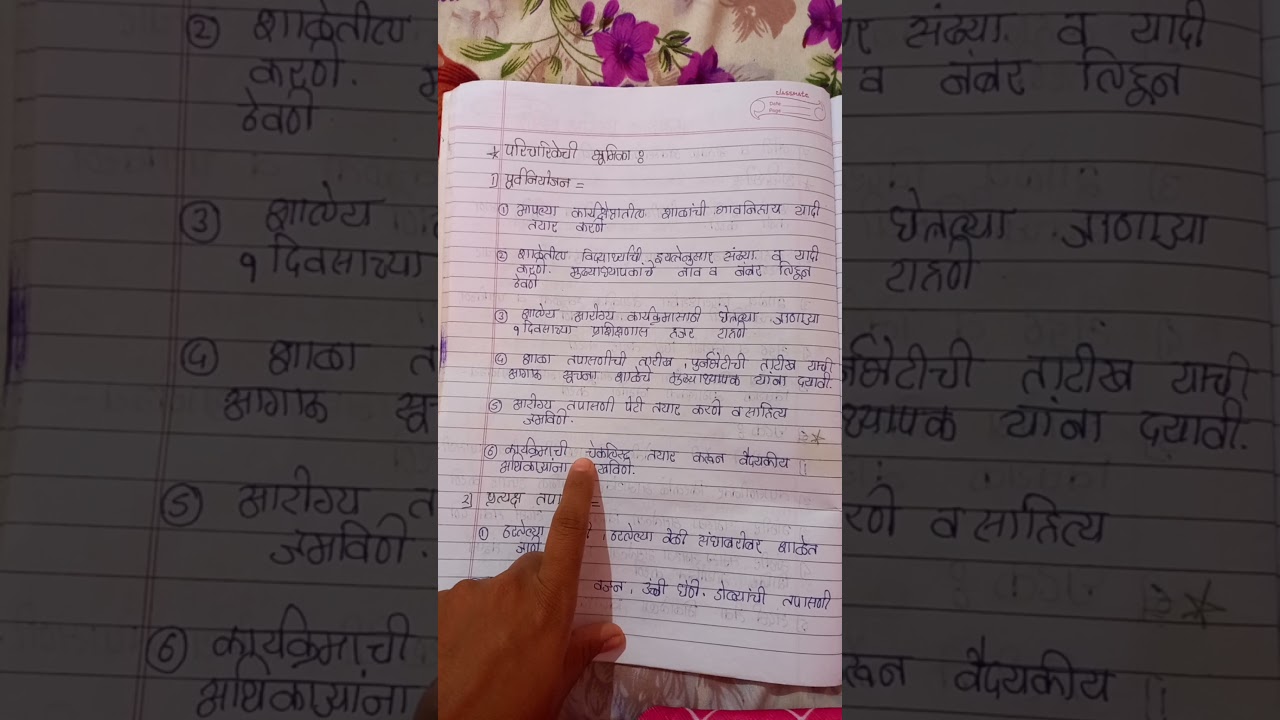 classmate
Date
Page
* परिचारिकेची भूमिका :
1) पूर्वनियोजन =
① आपल्या कार्यक्षेत्रातील शाळांची गावनिहाय यादी
तयार करणे
② शाळेतील विद्यार्थ्यांची इयत्तेनुसार संख्या व यादी
करणे. मुख्याध्यापकांचे नाव व नंबर लिहून
ठेवणे
③ शालेय आरोग्य कार्यक्रमासाठी घेतल्या जाणाऱ्या
१ दिवसाच्या प्रशिक्षणास हजर राहणे
④ शाळा तपासणीची तारीख, पुर्नभेटीची तारीख याची
आगाऊ सूचना शाळेचे मुख्याध्यापक यांना दयावी.
⑤ आरोग्य तपासणी पेटी तयार करणे व साहित्य
जमविणे.
⑥ कार्यक्रमाची चेकलिस्ट तयार करून वैदयकीय
अधिकाऱ्यांना
2) प्रत्यक्ष =
① ठरलेल्या , ठरलेल्या वेळी संघाबरोबर शाळेत
जाणे
वजन, उंची घेणे. डोळ्यांची तपासणी